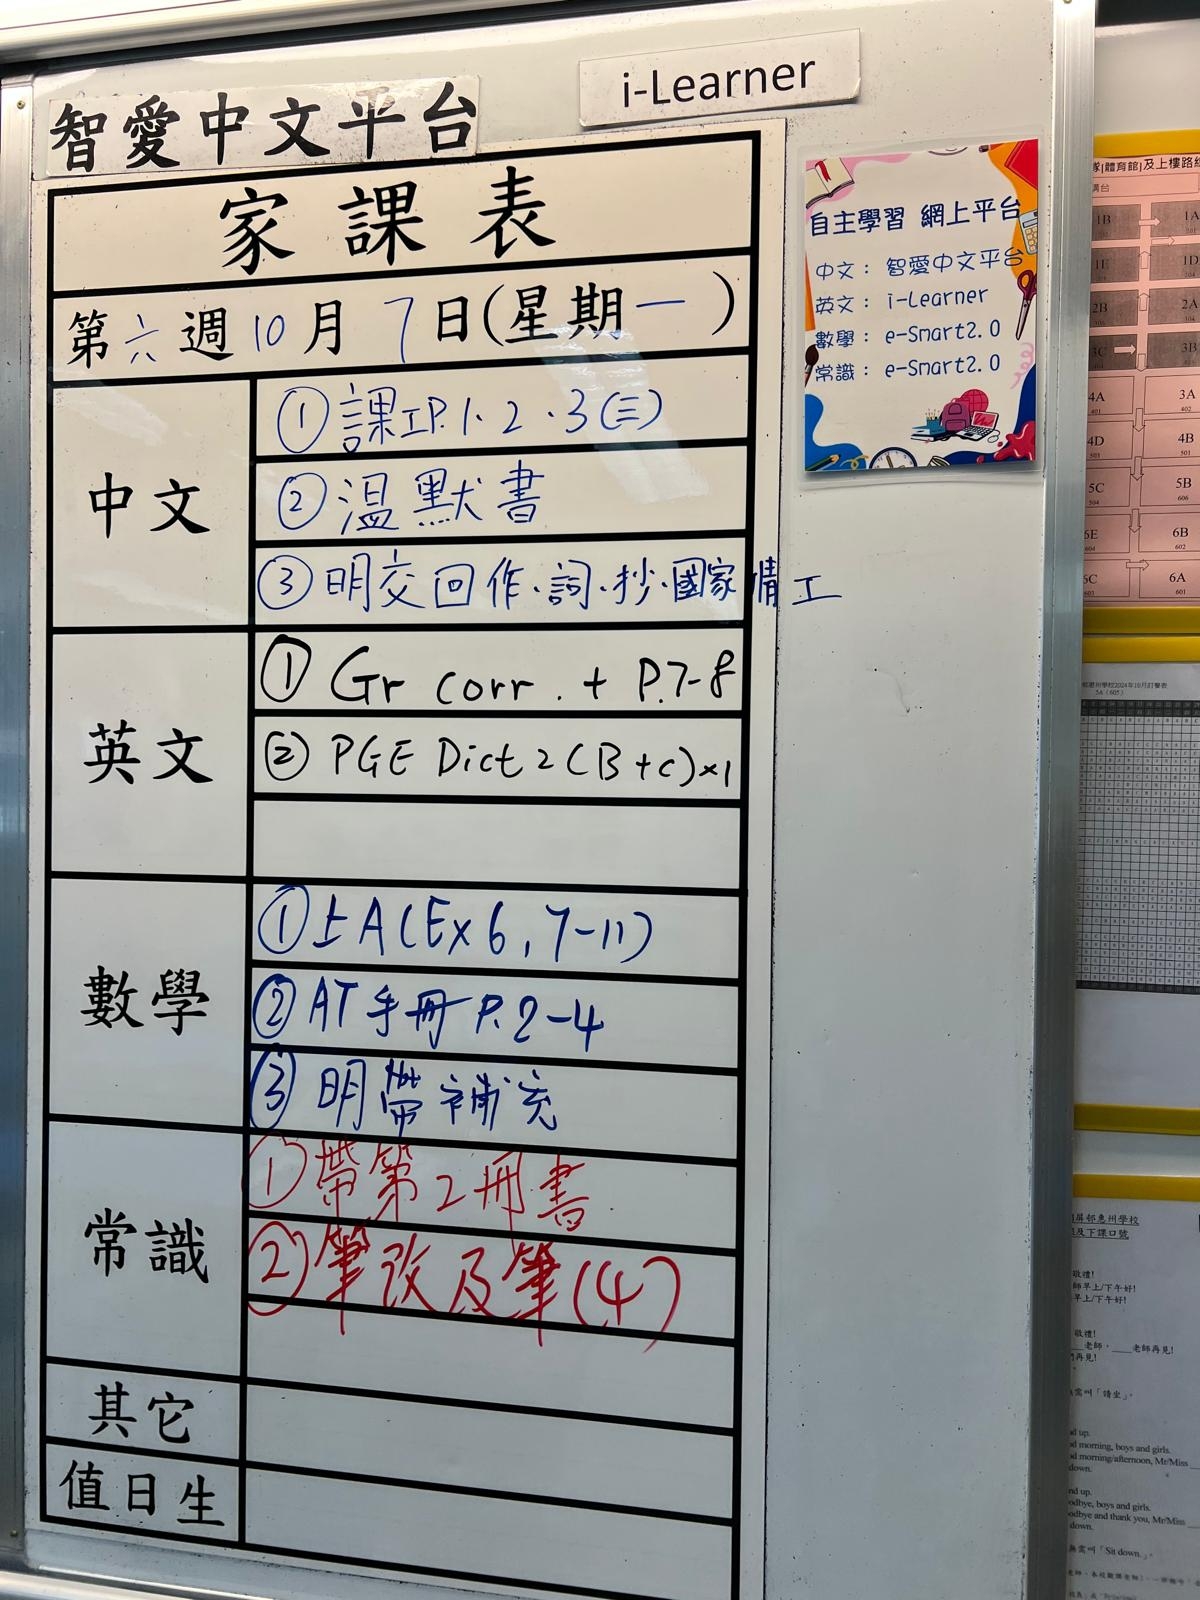 智愛中文平台
i-Learner
家課表
第六週10月7日(星期一)
中文
①課工P.1、2、3(三)
②溫默書
③明交回作、詞、抄、國家情工
英文
①Gr corr. + P.7-8
②PGE Dict 2 (B+C)×1
數學
①上A(Ex 6, 7-11)
②AT手冊P.2-4
③明帶補充
常識
①帶第2冊書
②筆改及筆(4)
其它
值日生
自主學習 網上平台
中文： 智愛中文平台
英文： i-Learner
數學： e-Smart2.0
常識： e-Smart2.0
體育館]及上樓路
1B 1A
1E 1D
2B 2A
3C 3B
4A 3A
401 402
4D 4B
503 501
5C 5B
504 606
6E 6B
604 602
6C 6A
603 601
惠州學校2024年10月訂餐表
5A (605)
邨惠州學校
及下課口號
敬禮!
師早上/下午好!
早上/下午好!
敬禮!
老師，____老師再見!
再見!
需叫「請坐」。
nd up.
od morning, boys and girls.
od morning/afternoon, Mr/Miss
down.
nd up.
odbye, boys and girls.
odbye and thank you, Mr/Miss
down.
無需叫「Sit down.」。